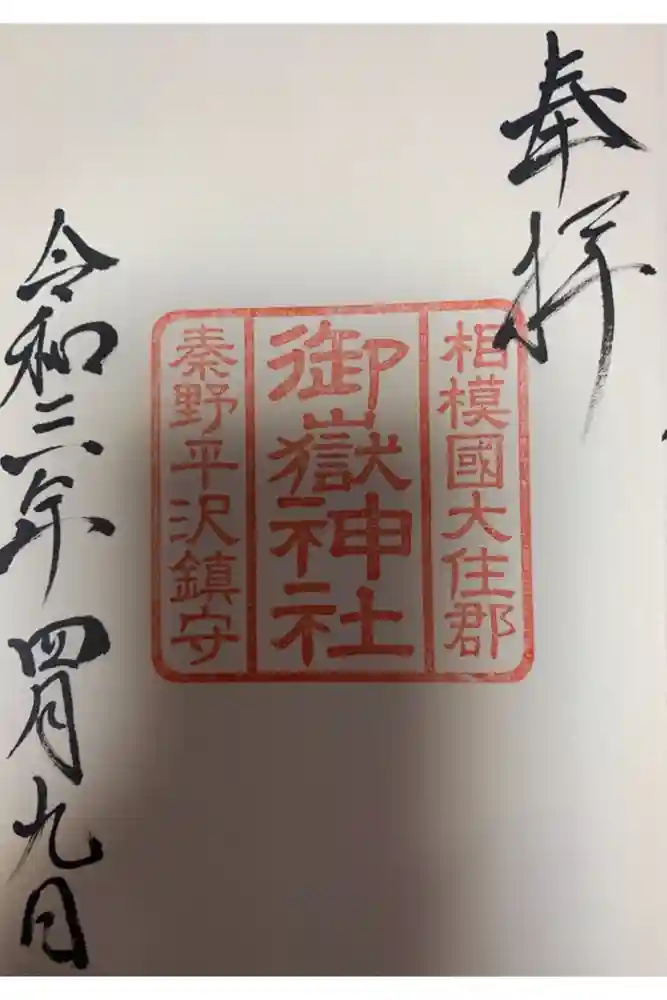 奉拝
相模國大住郡
御嶽神社
秦野平沢鎮守
令和三年四月九日